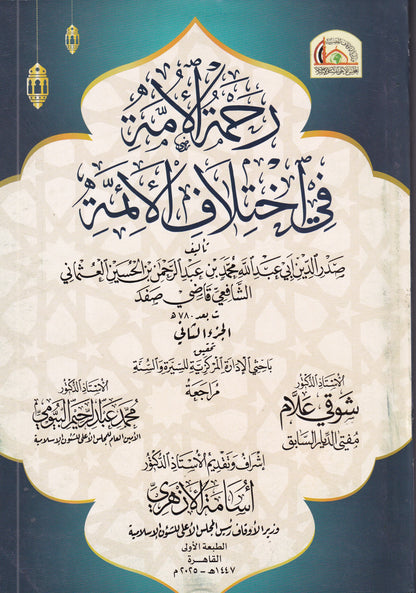 رحمة الأمة
في اختلاف الأئمة
تأليف
صدر الدين أبي عبد الله محمد بن عبد الرحمن بن الحسين العثماني
الشافعي قاضي صفد
ت بعد ٧٨٠ هـ
الجزء الثاني
تحقيق
باحثي الإدارة المركزية للسيرة والسنة
مراجعة
الأستاذ الدكتور
شوقي علام
مفتي الديار السابق
الأستاذ الدكتور
محمد عبد الرحيم البيومي
الأمين العام للمجلس الأعلى للشئون الإسلامية
إشراف وتقديم الأستاذ الدكتور
أسامة الأزهري
وزير الأوقاف رئيس المجلس الأعلى للشئون الإسلامية
الطبعة الأولى
القاهرة
١٤٤٧هـ - ٢٠٢٥م